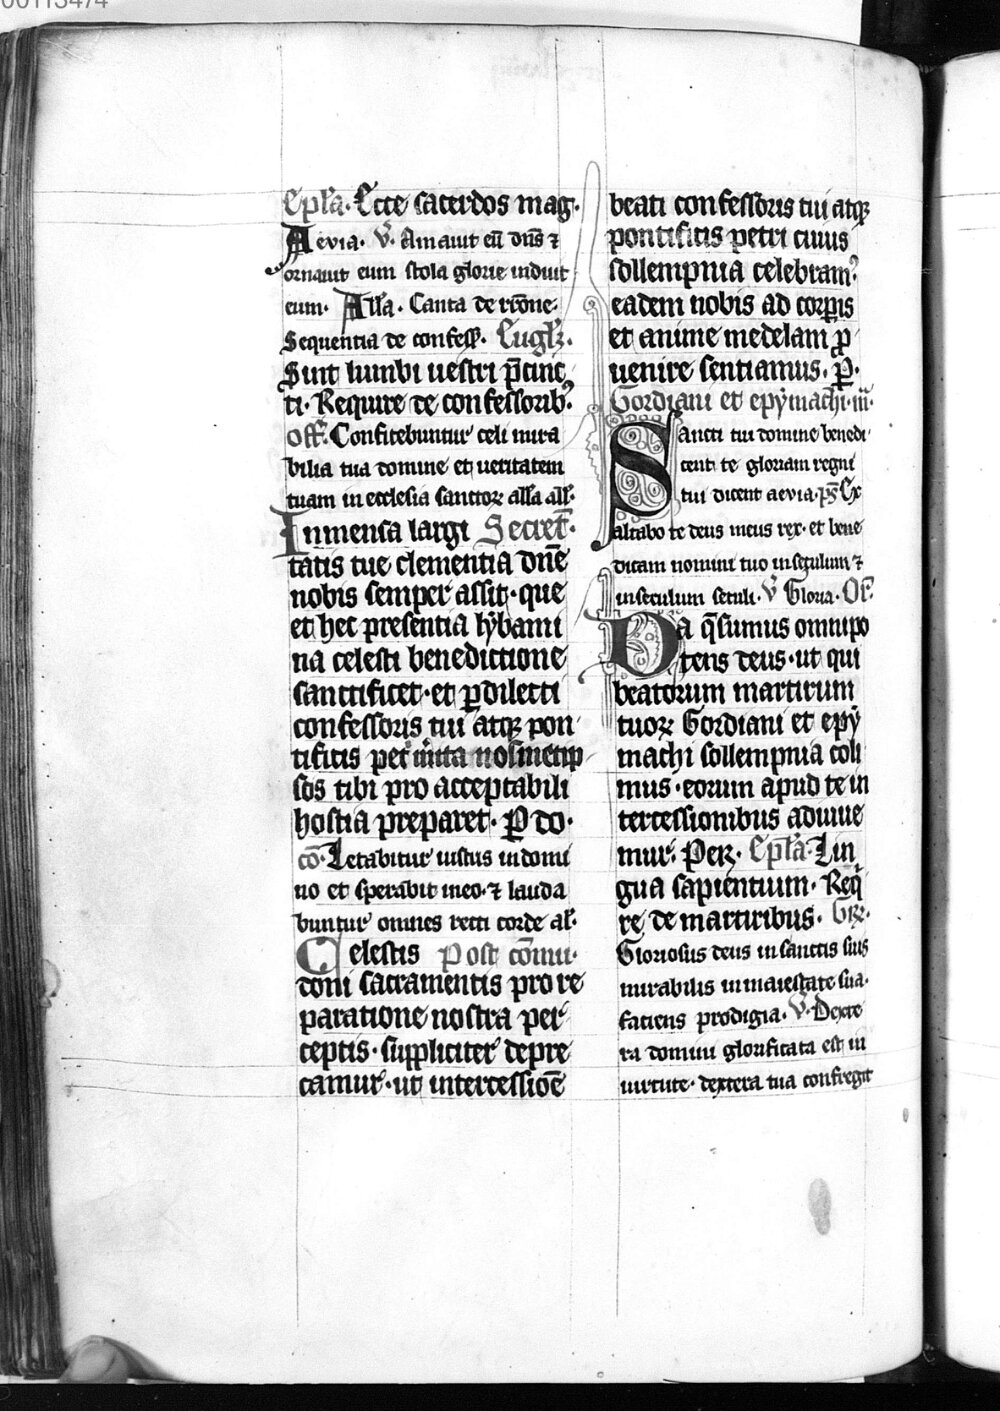 00113474
Ep̄la. Ecce sacerdos mag.
Aevia. V̄. Amauit eū dn̄s ⁊
ornauit eum stola glorie induit
eum. All̄a. Canta de rc̄one.
Sequentia de confess̄.
Sint lumbi uestri p̄cinc
ti. Require de confessorib᷒.
Off̄. Confitebuntur celi mira
bilia tua domine et ueritatem
tuam in ecclesia sanctoꝝ all̄a all̄.
Inmensa largi Secret̄.
tatis tue clementia dn̄e
nobis semper assit. que
et hec presentia lybami
na celesti benedictione
sanctificet. et ꝑ dilecti
confessoris tui atqꝫ pon
tificis petri merita nosmetip
sos tibi pro acceptabili
hostia preparet. P do.
cō. Letabitur iustus in domi
no et sperabit in eo. ⁊ lauda
buntur omnes recti corde al̄.
Celestis Post cōmu.
doni sacramentis pro re
paratione nostra per
ceptis. suppliciter depre
camur. ut intercessiōe
beati confessoris tui atqꝫ
pontificis petri cuius
sollempnia celebram᷒.
eadem nobis ad corꝑis
et anime medelam ꝑ
uenire sentiamus. P.
Gordiani et epymachi. m̄.
Sancti tui domine benedi
cent te gloriam regni
tui dicent aevia. ps̄ Ex
altabo te deus meus rex. et bene
dicam nomini tuo in seculum ⁊
in seculum seculi. V̄ Gloria. Or̄.
Da q̄sumus omnipo
tens deus. ut qui
beatorum martirum
tuoꝝ Gordiani et epy
machi sollempnia coli
mus. eorum apud te in
tercessionibus adiuue
mur. Per. Ep̄la. Lin
gua sapientium. Req̄
re de martiribus. Gr̄.
Gloriosus deus in sanctis suis
mirabilis in maiestate sua.
faciens prodigia. V̄. Dexte
ra domini glorificata est in
uirtute. dextera tua confregit